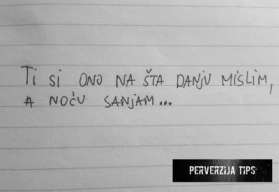 Ti si ono na šta danju mislim,
a noću sanjam...
PERVERZIJA TIPS